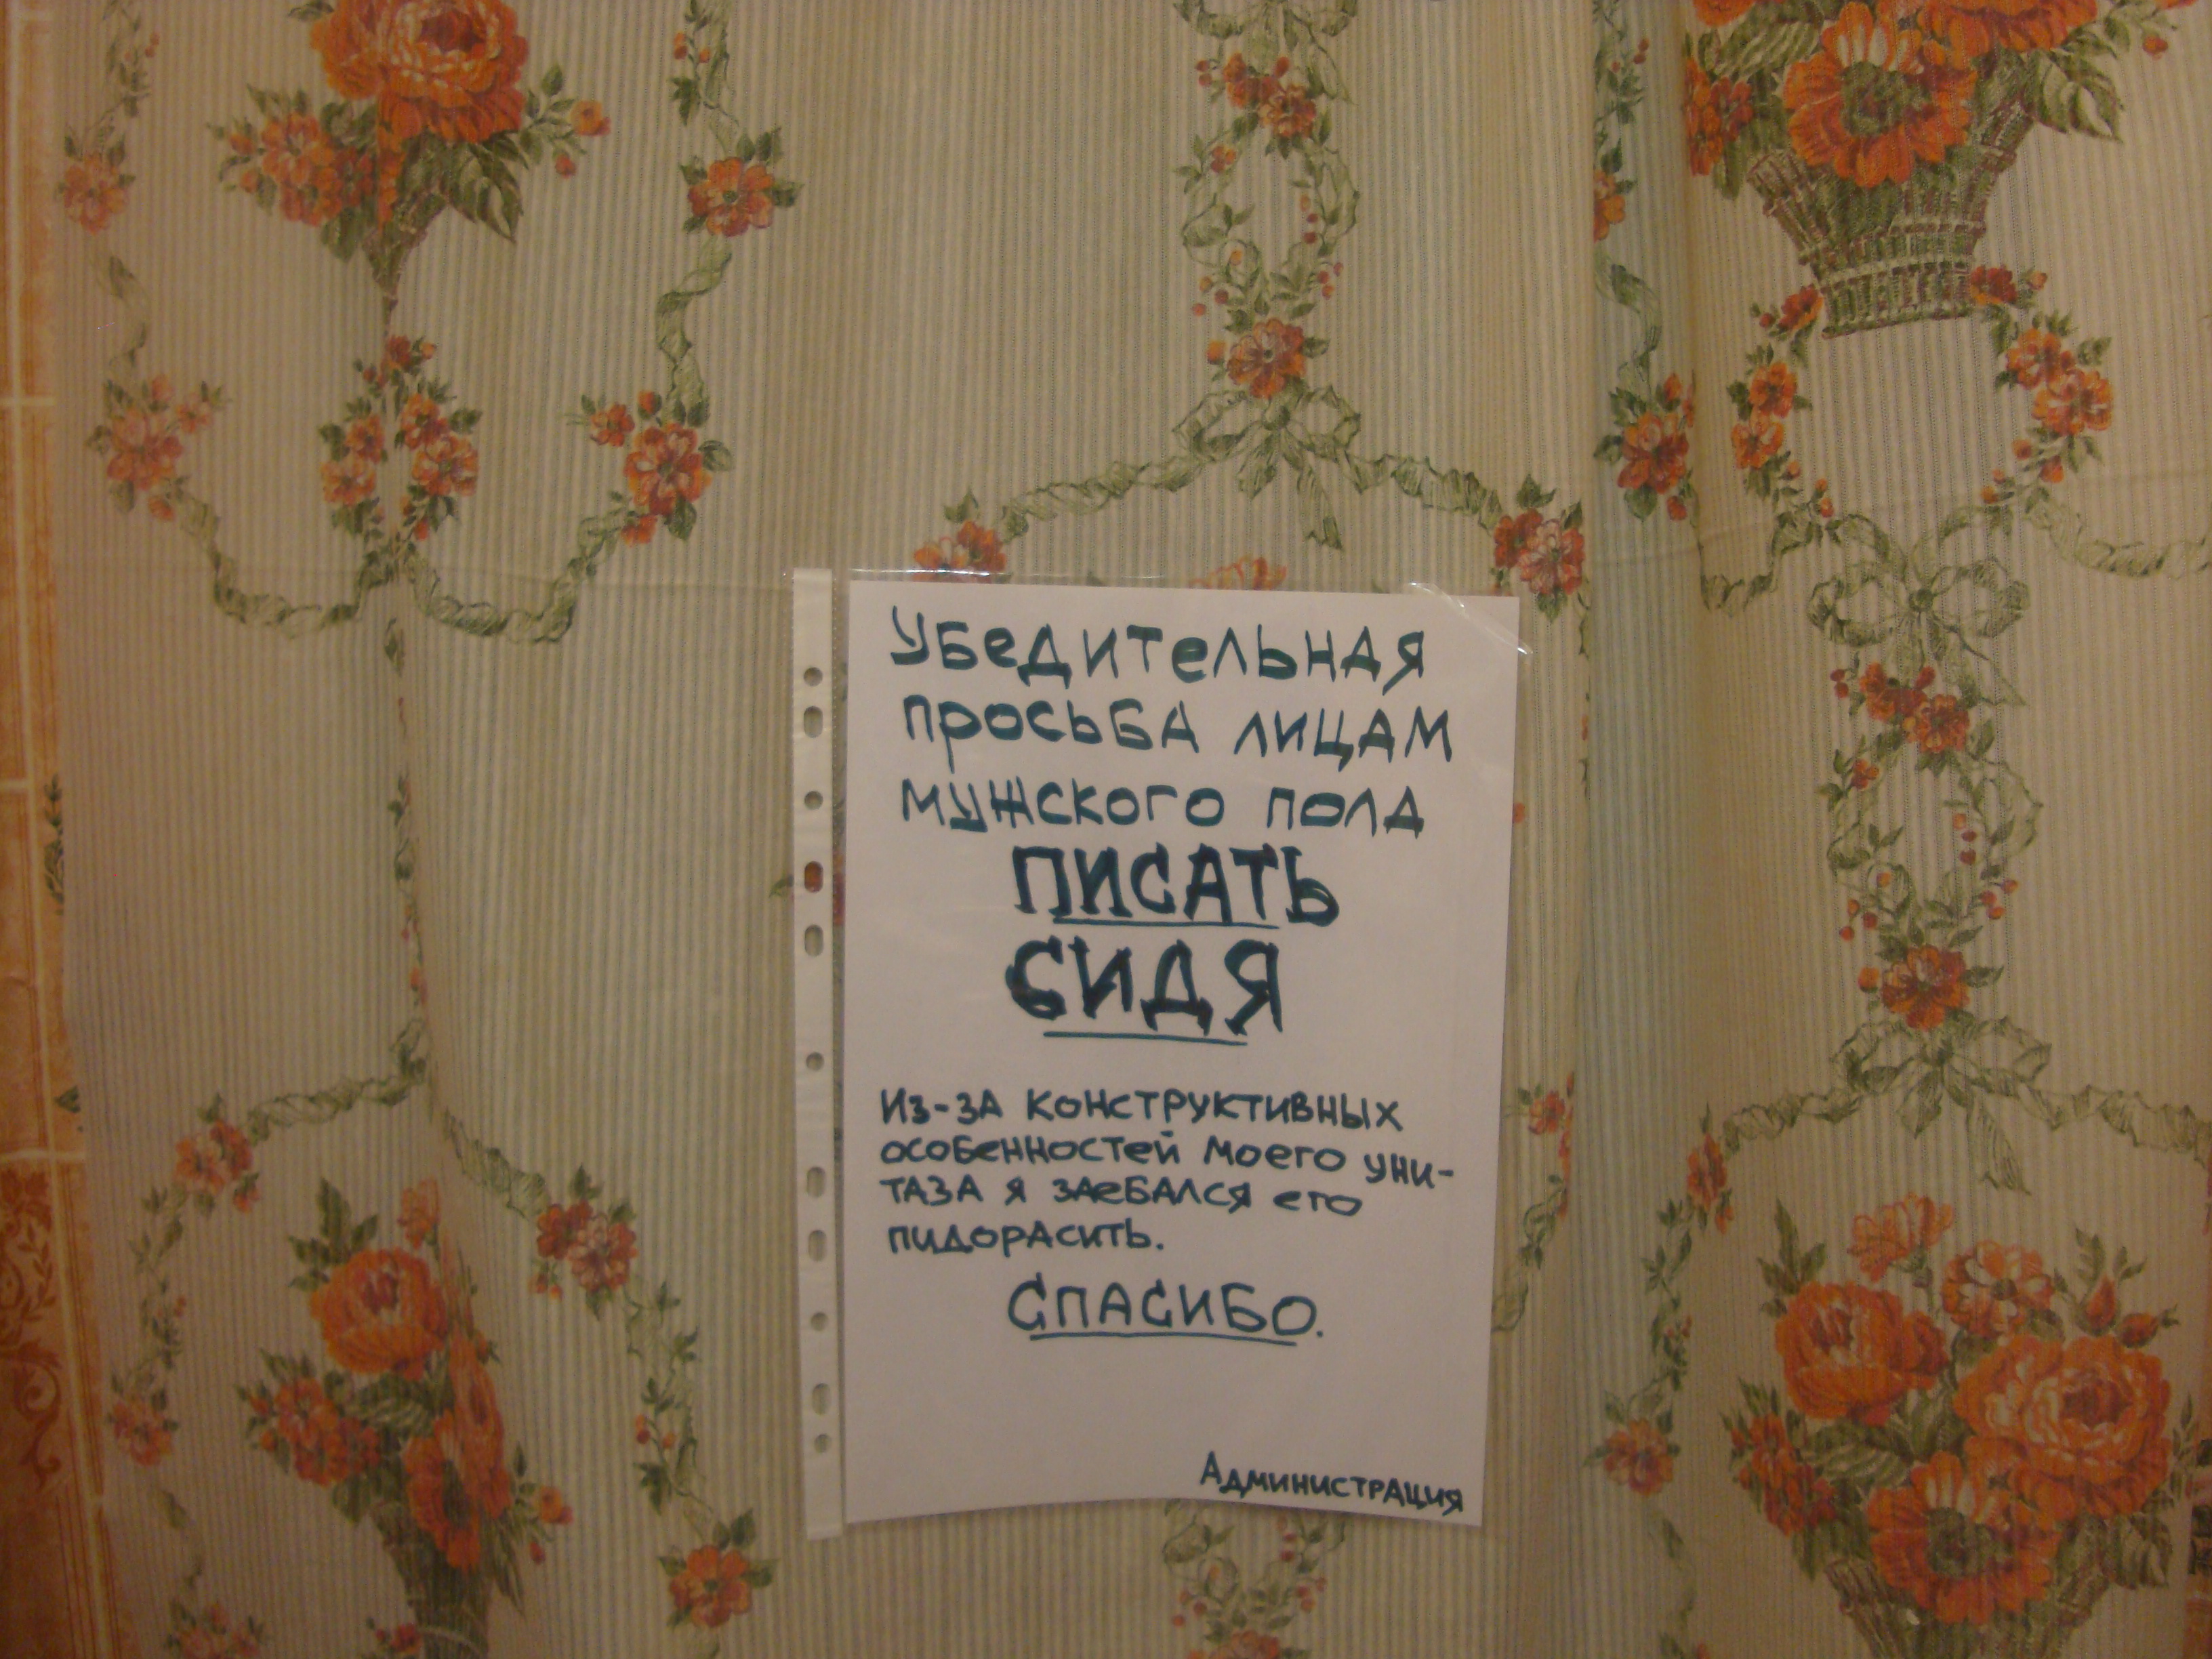 Убедительная
просьба лицам
мужского пола
ПИСАТЬ
СИДЯ
Из-за конструктивных
особенностей моего уни-
таза я заебался его
пидорасить.
Спасибо.
Администрация